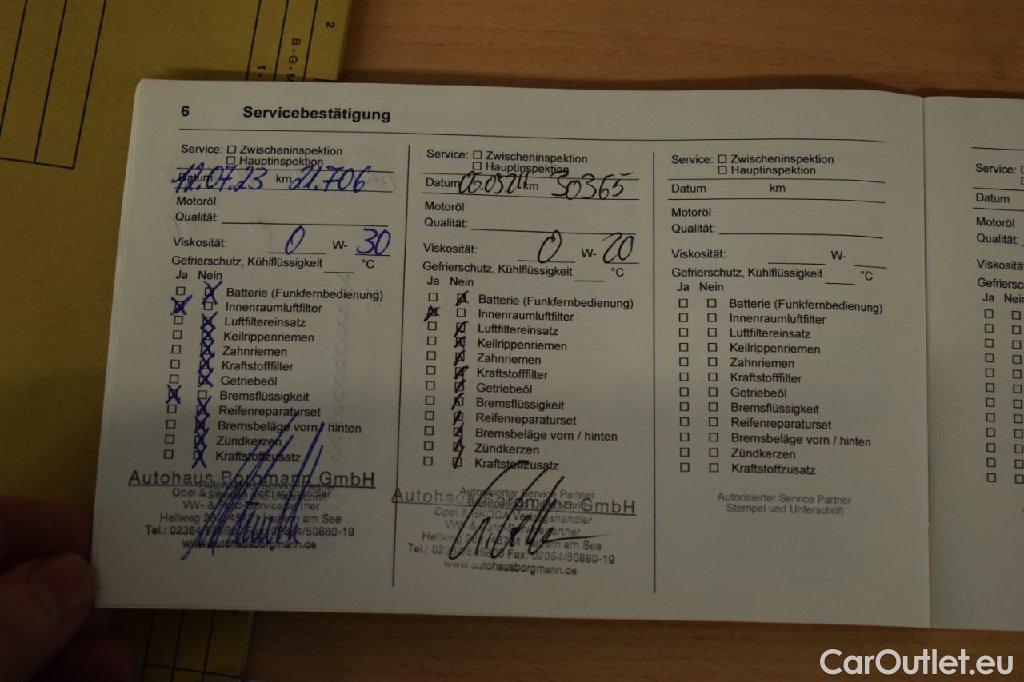 2
B-G-M
1-
6 Servicebestätigung
Service: ☐ Zwischeninspektion
☐ Hauptinspektion
Datum 12.07.23 km 21.706
Motoröl
Qualität:
Viskosität: 0 W- 30
Gefrierschutz, Kühlflüssigkeit °C
Ja Nein
☐ ☒ Batterie (Funkfernbedienung)
☒ ☐ Innenraumluftfilter
☐ ☒ Luftfiltereinsatz
☐ ☒ Keilrippenriemen
☐ ☒ Zahnriemen
☐ ☒ Kraftstofffilter
☐ ☒ Getriebeöl
☒ ☐ Bremsflüssigkeit
☐ ☒ Reifenreparaturset
☐ ☒ Bremsbeläge vorn / hinten
☐ ☒ Zündkerzen
☐ ☒ Kraftstoffzusatz
Autohaus Borgmann GmbH
Opel &
VW-
Hellweg am See
Tel.: 02364/ /50880-19
www.autohausborgmann.de
Service: ☐ Zwischeninspektion
☐ Hauptinspektion
Datum km 30365
Motoröl
Qualität:
Viskosität: 0 W- 20
Gefrierschutz, Kühlflüssigkeit °C
Ja Nein
☐ ☒ Batterie (Funkfernbedienung)
☒ ☐ Innenraumluftfilter
☐ ☒ Luftfiltereinsatz
☐ ☒ Keilrippenriemen
☐ ☒ Zahnriemen
☐ ☒ Kraftstofffilter
☐ ☒ Getriebeöl
☐ ☒ Bremsflüssigkeit
☐ ☒ Reifenreparaturset
☐ ☒ Bremsbeläge vorn / hinten
☐ ☒ Zündkerzen
☐ ☒ Kraftstoffzusatz
Autorisierter Service Partner
Autohaus Borgmann GmbH
Opel & SKODA
VW-
Hellweg am See
Fax: 02364/50880-19
www.autohausborgmann.de
Service: ☐ Zwischeninspektion
☐ Hauptinspektion
Datum km
Motoröl
Qualität:
Viskosität: W-
Gefrierschutz, Kühlflüssigkeit °C
Ja Nein
☐ ☐ Batterie (Funkfernbedienung)
☐ ☐ Innenraumluftfilter
☐ ☐ Luftfiltereinsatz
☐ ☐ Keilrippenriemen
☐ ☐ Zahnriemen
☐ ☐ Kraftstofffilter
☐ ☐ Getriebeöl
☐ ☐ Bremsflüssigkeit
☐ ☐ Reifenreparaturset
☐ ☐ Bremsbeläge vorn / hinten
☐ ☐ Zündkerzen
☐ ☐ Kraftstoffzusatz
Autorisierter Service Partner
Stempel und Unterschrift
Service:
Datum
Motoröl
Qualität:
Viskosität
Gefriersc
Ja Nein
CarOutlet.eu